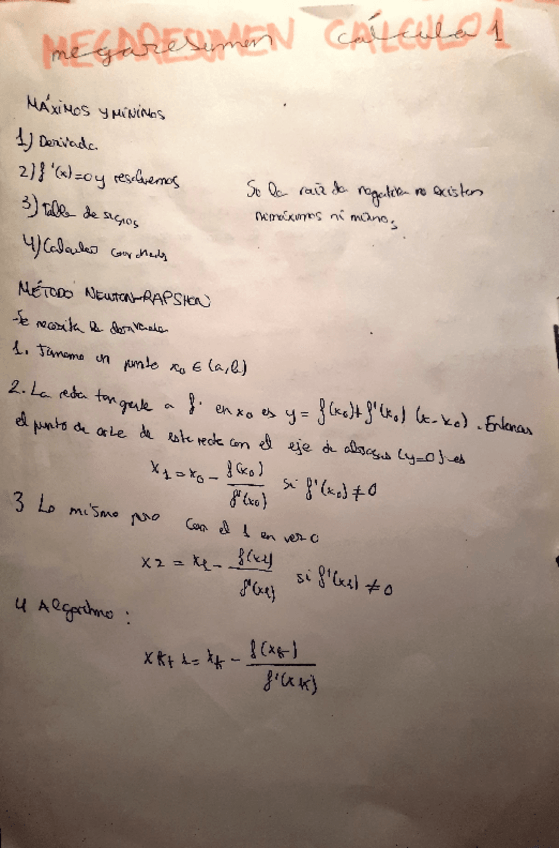 MEGARESUMEN CÁLCULO 1
MÁXIMOS Y MÍNIMOS
1) Derivada.
2) f'(x)=0 y resolvemos
3) Tabla de signos
4) Calculas coordenadas
Si la raiz da negativa no existen
ni máximos ni mínimos
MÉTODO NEWTON-RAPSHON
-Se necesita la derivada
1. Tomamos un punto x₀ ∈ (a,b)
2. La recta tangente a f en x₀ es y = f(x₀)+f'(x₀) (x-x₀). Entonces
el punto de corte de este recta con el eje de abscisas (y=0) es
x₁ = x₀ - f(x₀)/f'(x₀) si f'(x₀) ≠ 0
3 Lo mismo pero con el 1 en vez 0
x₂ = x₁ - f(x₁)/f'(x₁) si f'(x₁) ≠ 0
4 Algoritmo:
xₖ₊₁ = xₖ - f(xₖ)/f'(xₖ)